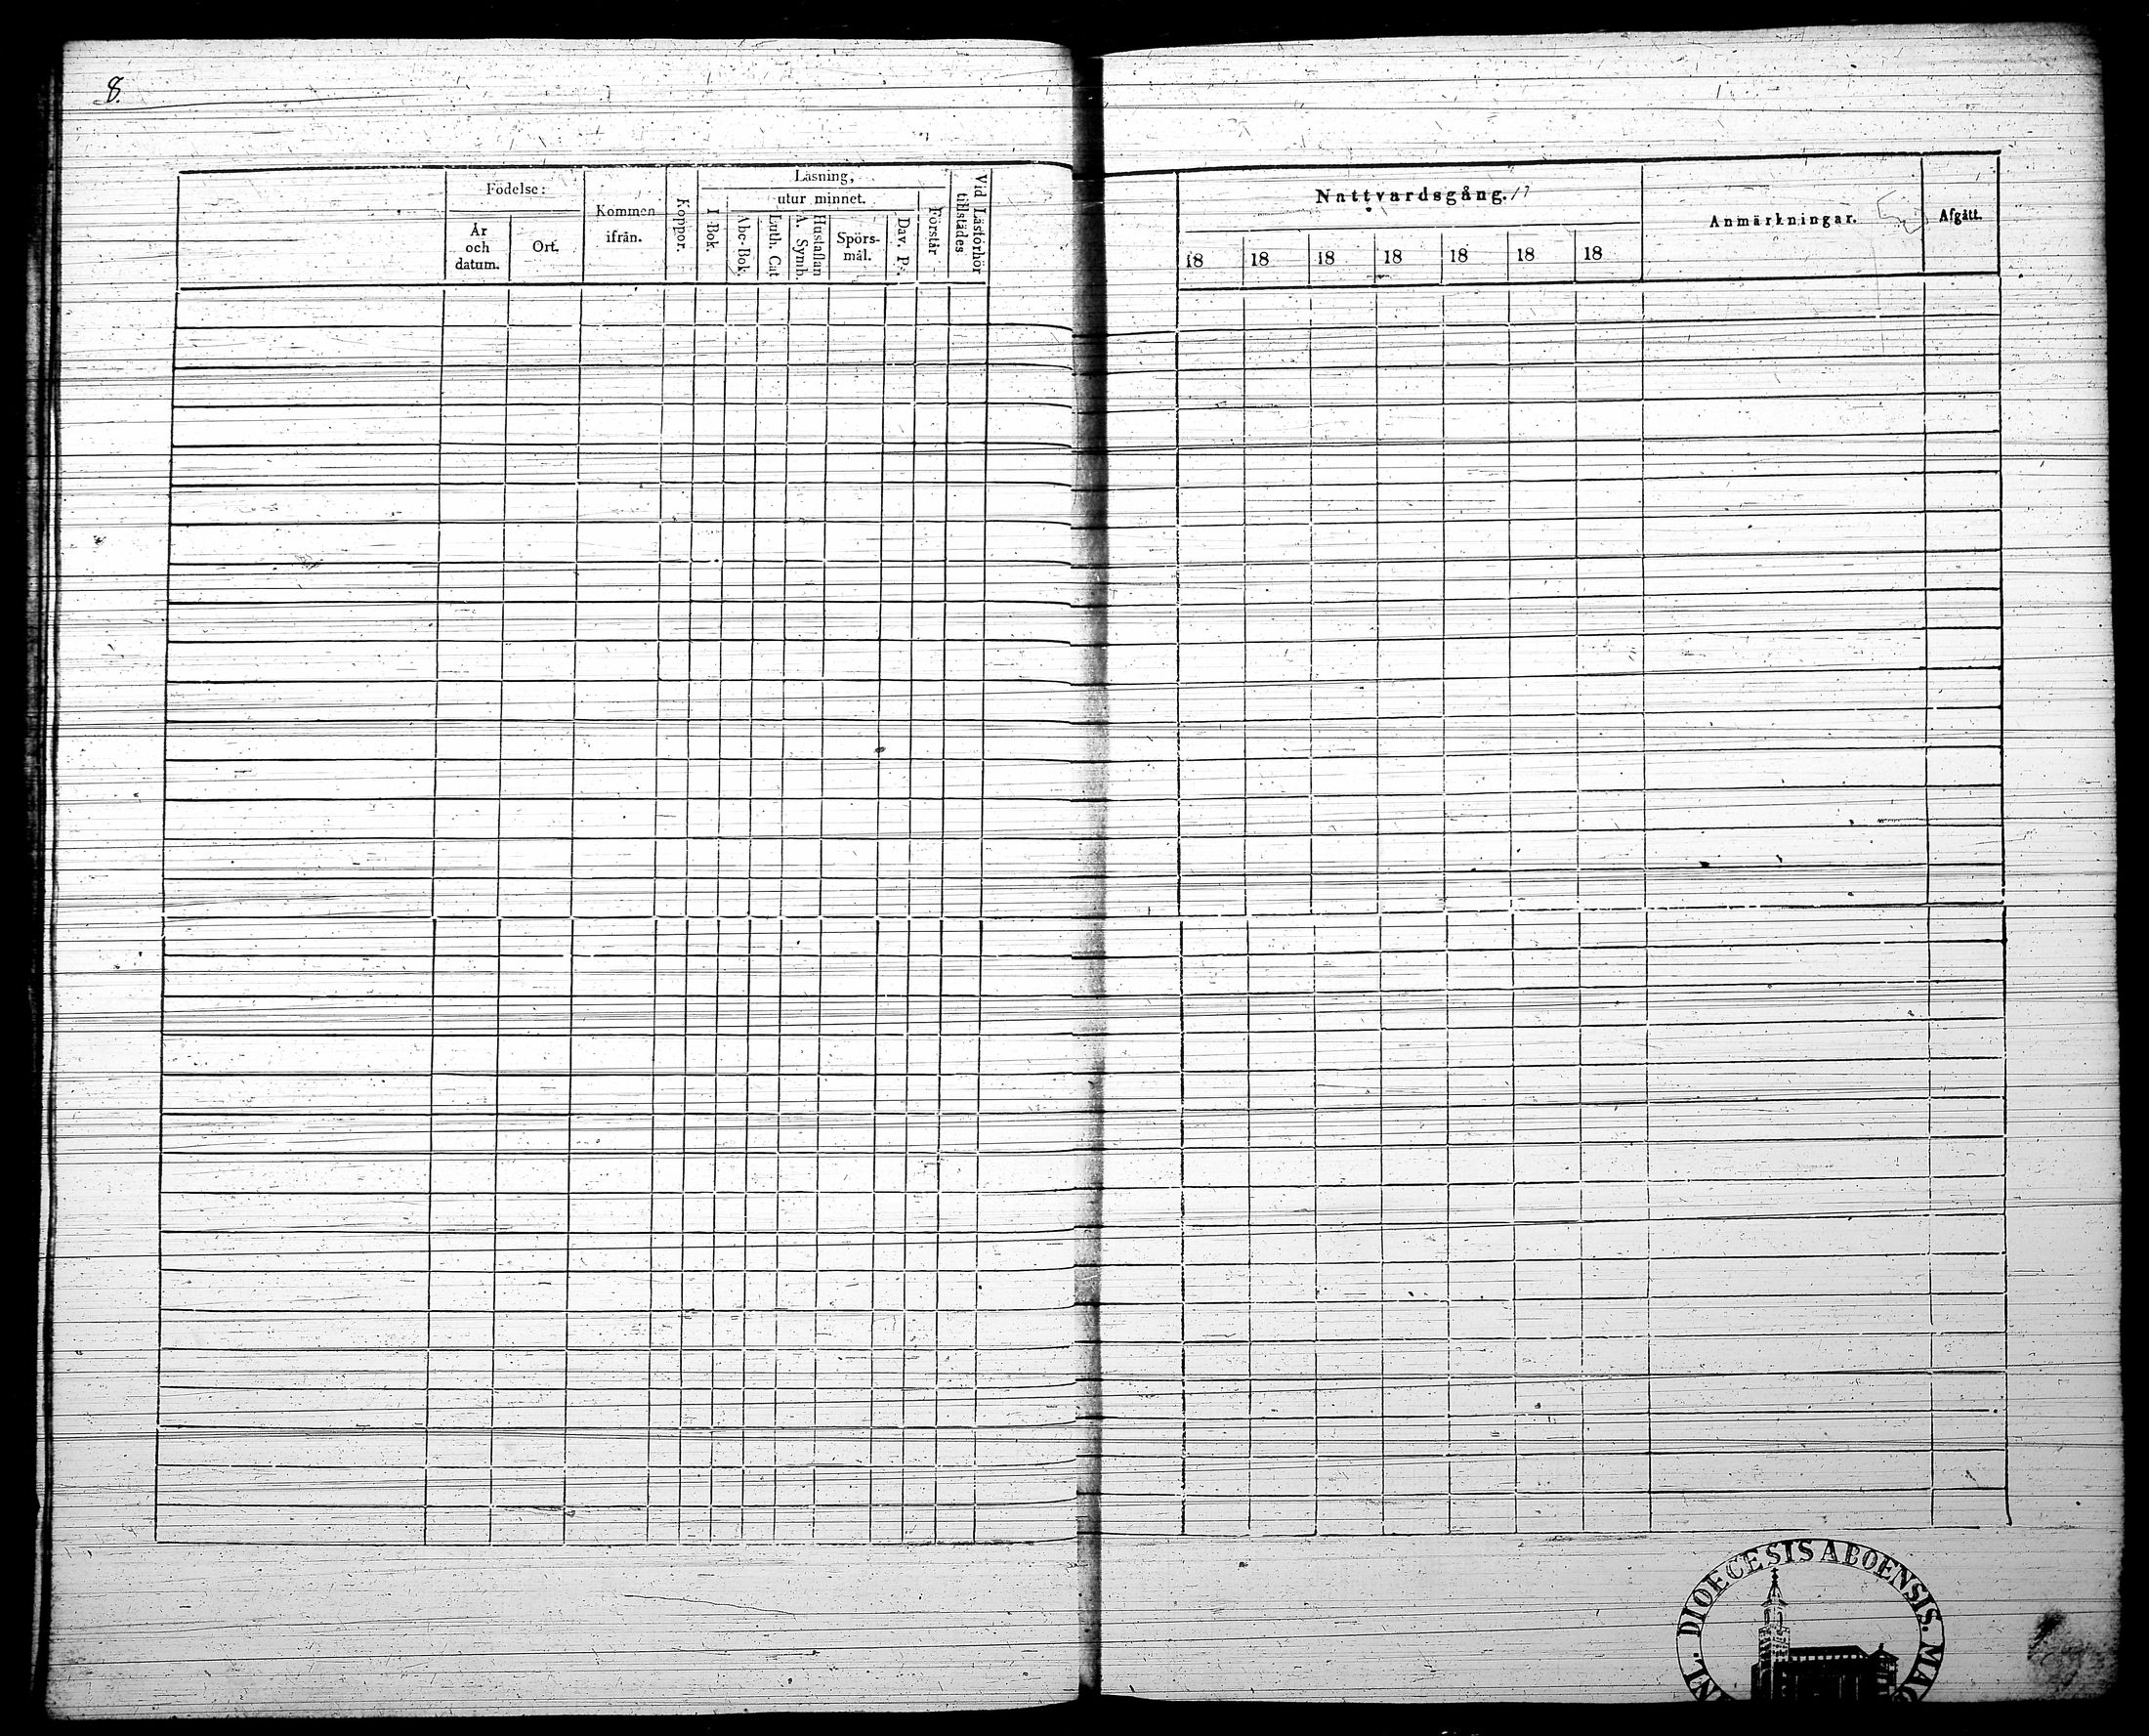 8.
Födelse:
År
och
datum.
Ort.
Kommen
ifrån.
Koppor.
Läsning,
I Bok.
utur minnet.
Abc-Bok
Luth. Cat
Hustaflan
A. Symb.
Spörs-
mål.
Dav. Ps.
Förstår
Vid Läsförhör
tillstädes
Nattvardsgång.
18 18 18 18 18 18 18
Anmärkningar.
Afgått.
DIOECESIS ABOENSIS.